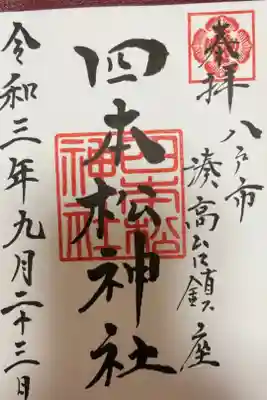 奉拝
八戸市
湊高台鎮座
四本松神社
四本松
神社
令和三年九月二十三日